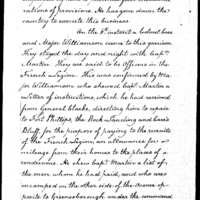 nations of provisions. He has gone down the
country to execute this business.
On the 8th instant a Colonel Carr
and Major Williamson came to this garrison.
They staid the day and night with Capt.
Martin. They are said to be Officers in the
French Legion. This was confirmed by Ma-
jor Williamson who shewed Capt. Martin
a letter of instructions, which he had received
from General Clarke, directing him to repair
to Fort Phillips, the Rock Landing and Carr's
Bluff, for the purpose of paying to the recruits
of the French Legion, an allowance for
mileage from their homes to the place of
rendezvous. He shew Capt. Martin a list of
the men whom he had paid, and who was
encamped on the other side of the Oconee op-
posite to Greensborough, under the command